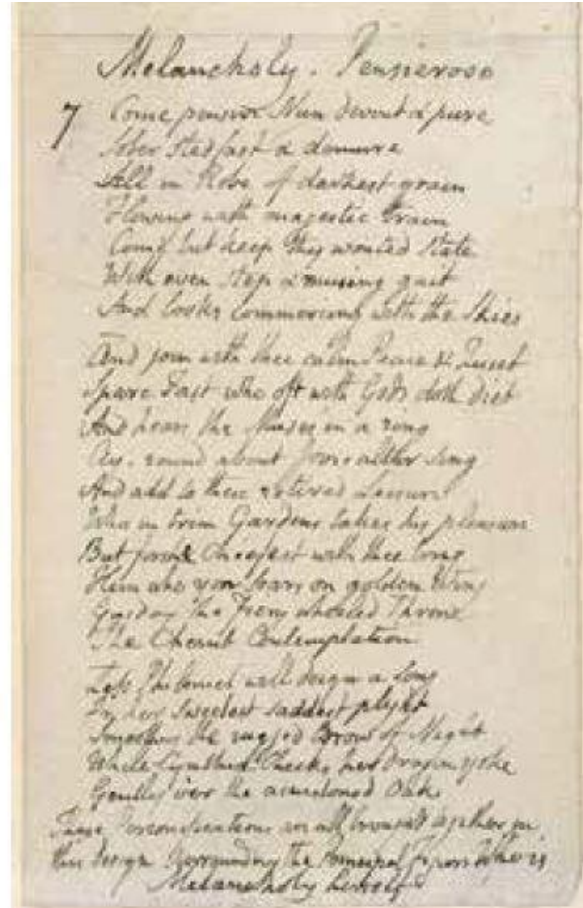 Melancholy. Pensieroso
7 Come pensive Nun devout & pure
Sober stedfast & demure
All in Robe of darkest grain
Flowing with majestic train
Come but keep thy wonted state
With even step & musing gait
And looks commercing with the Skies
And join with thee calm Peace & Quiet
Spare Fast who oft with Gods doth diet
And hears the Muses in a ring
Ay. round about Joves altar sing
And add to these retired Leisure
Who in trim Gardens takes his pleasure
But first Chiefest with thee bring
Him who yon soars on golden Wing
Guiding the Fiery wheeled Throne
The Cherub Contemplation
Less Philomel will deign a song
In her sweetest saddest plight
Smoothing the rugged Brow of Night
While Cynthia Checks her Dragon yoke
Gently o'er the accustomed Oak
These Personifications are all brought together in
this design surrounding the Principal Figure Who is
Melancholy herself